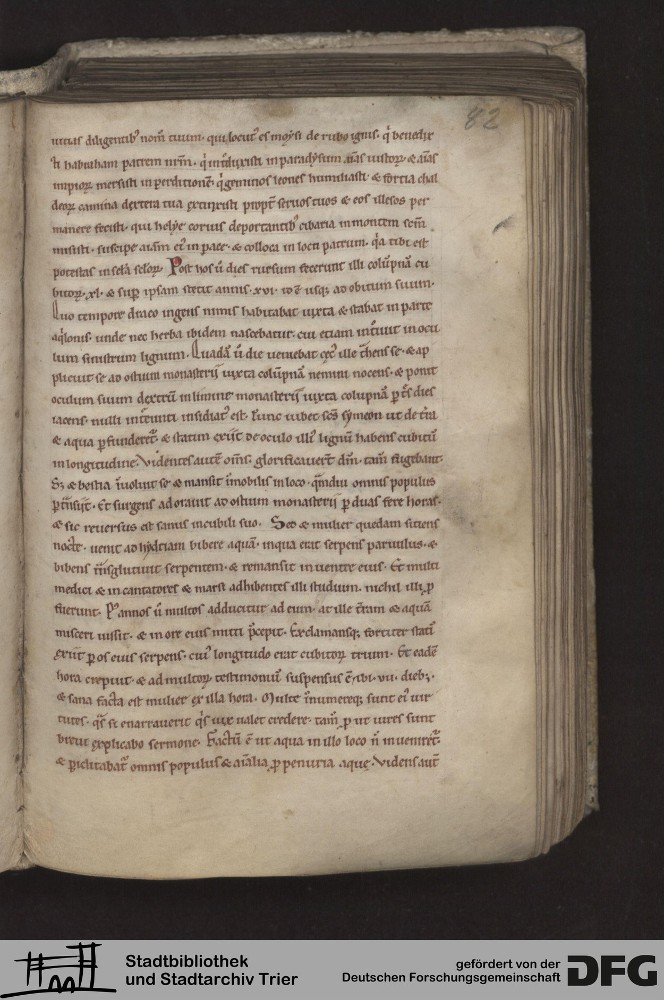 82
uitias diligentibꝰ nom̄ tuum. qui locutꝰ es moysi de rubo ignis. qͥ benedix
ti habraham patrem nr̄m. qͥ intͣduxisti in paradysum aīas iustorꝝ. & aīas
impiorꝝ mersisti in perditionē. qͥ geminos leones humiliasti. & fortia chal
deorꝝ camina dextera tua extinxisti propt̄ seruos tuos & eos illesos per
manere fecisti. qui helye coruis deportantibꝰ cibaria in montem sc̄m
misisti. suscipe aīam eiꝰ in pace. & colloca in loco patrum. qͥa tibi est
potestas in sc̄la sc̄lorꝝ. Post hos ū dies rursum fecerunt illi colūpnā cu
bitorꝝ .xl. & sup̄ ipsam stetit annis .xvi. id ē usqꝫ ad obitum suum.
Quo tempore draco ingens nimis habitabat iuxta & stabat in parte
aqͥlonis. unde nec herba ibidem nascebatur. cui etiam intͣuit in ocu
lum sinistrum lignum. Quadā ū die ueniebat cęcꝰ ille tͣhens se. & ap
plicuit se ad ostium monasterij iuxta colūpnā nemini nocens. & ponit
oculum suum dextrū in limine monasterij iuxta colupnā ꝑ tͤs dies
iacens. nulli intͣeunti insidiatꝰ est. Tunc iubet sc̄s symeon ut de tͤra
& aqua ꝑfunderetͬ. & statim exiit de oculo illiꝰ lignū habens cubitū
in longitudine. Videntes autē om̄s. glorificauer̄t dm̄. tam̄ fugebant.
Sꝫ & bestia inuoluit se & mansit īmobilis in loco. qͣmdiu omnis populus
ꝑtͣnsiit. Et surgens adorauit ad ostium monasterij ꝑ duas fere horas.
& sic reuersus est sanus in cubili suo. Sed & mulier quedam sitiens
nocte. uenit ad hydriam bibere aquā. in qua erat serpens paruulus. &
bibens tͣnsglutiuit serpentem. & remansit in uentre eius. Et multi
medici & incantatores & marsi adhibentes illi studium. nichil illi ꝓ
fuerunt. Ꝑ annos ū multos adducitur ad eum. at ille tͤram & aquā
misceri iussit. & in ore eius mitti p̄cepit. Exclamansqꝫ fortiter stati
exiit ꝑ os eius serpens. cuiꝰ longitudo erat cubitorꝝ trium. Et eadē
hora crepuit. & ad multorꝝ testimoniū suspensus ē ibi .vii. diebꝫ.
& sana facta est mulier ex illa hora. Multe īnumereqꝫ sunt eiꝰ uir
tutes. qͣs si enarrauerit qͥs uix ualet credere. tam̄ ꝓ ut uires sunt
breui explicabo sermone. Factū ē ut aqua in illo loco n̄ inueniretͬ.
& ꝑiclitabatͬ omnis populus & aīalia ꝓ penuria aquę. Vidensaut̄
Stadtbibliothek
und Stadtarchiv Trier
gefördert von der
Deutschen Forschungsgemeinschaft
DFG